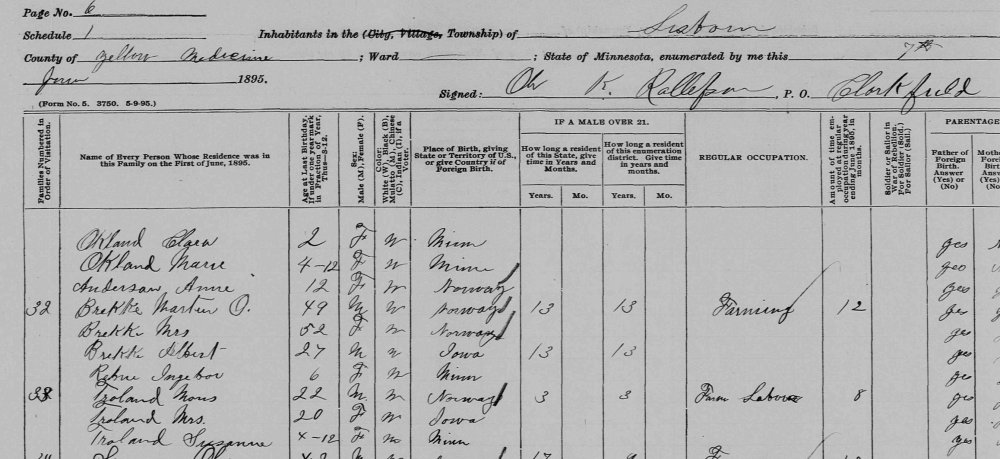 Page No. 6
Schedule 1 Inhabitants in the (City, Village, Township) of Lisbon
County of Yellow Medicine ; Ward — ; State of Minnesota, enumerated by me this 7th
June 1895. Signed: Ole K. , P. O. Clarkfield
(Form No. 5. 3750. 5-9-95.)
Families Numbered in Order of Visitation.
Name of Every Person Whose Residence was in this Family on the First of June, 1895.
Age at Last Birthday. If under one year mark in Fraction of Year, Thus—8-12.
Sex: Male (M), Female (F).
Color: White (W), Black (B), Mulatto (M), Chinese (C), Indian (I), if a Voter.
Place of Birth, giving State or Territory of U.S., or give Country if of Foreign Birth.
IF A MALE OVER 21.
How long a resident of this State, give time in Years and Months.
How long a resident of this enumeration district. Give time in years and months.
Years. Mo. Years. Mo.
REGULAR OCCUPATION.
Amount of time employed at regular occupation during year ending June 1895, in months.
Soldier or Sailor in War of Rebellion. For Soldier (Sold.) For Sailor (Sail)
PARENTAGE
Father of Foreign Birth. Answer (Yes) or (No)
Mothe Foreig Birth Answ (Yes) (No
Okland Clara 2 F W Minn yes
Okland Marie 4-12 F W Minn yes
Anderson Anne 12 F W Norway yes
32 Brekke Martin O. 49 M W Norway 13 13 Farming 12 yes
Brekke Mrs 52 F W Norway yes
Brekke Albert 27 M W Iowa 13 13 yes
Ingebor 6 F W Minn yes
33 Troland Mons 22 M W Norway 3 3 Farm Laborer 8 yes
Troland Mrs. 20 F W Iowa yes
Troland Susanne 4-12 F W Minn yes